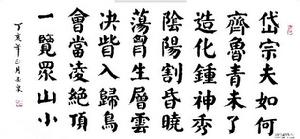 岱宗夫如何
齊魯青未了
造化鍾神秀
陰陽割昏曉
蕩胷生層雲
決眥入歸鳥
會當淩絕頂
一覽眾山小
丁亥年